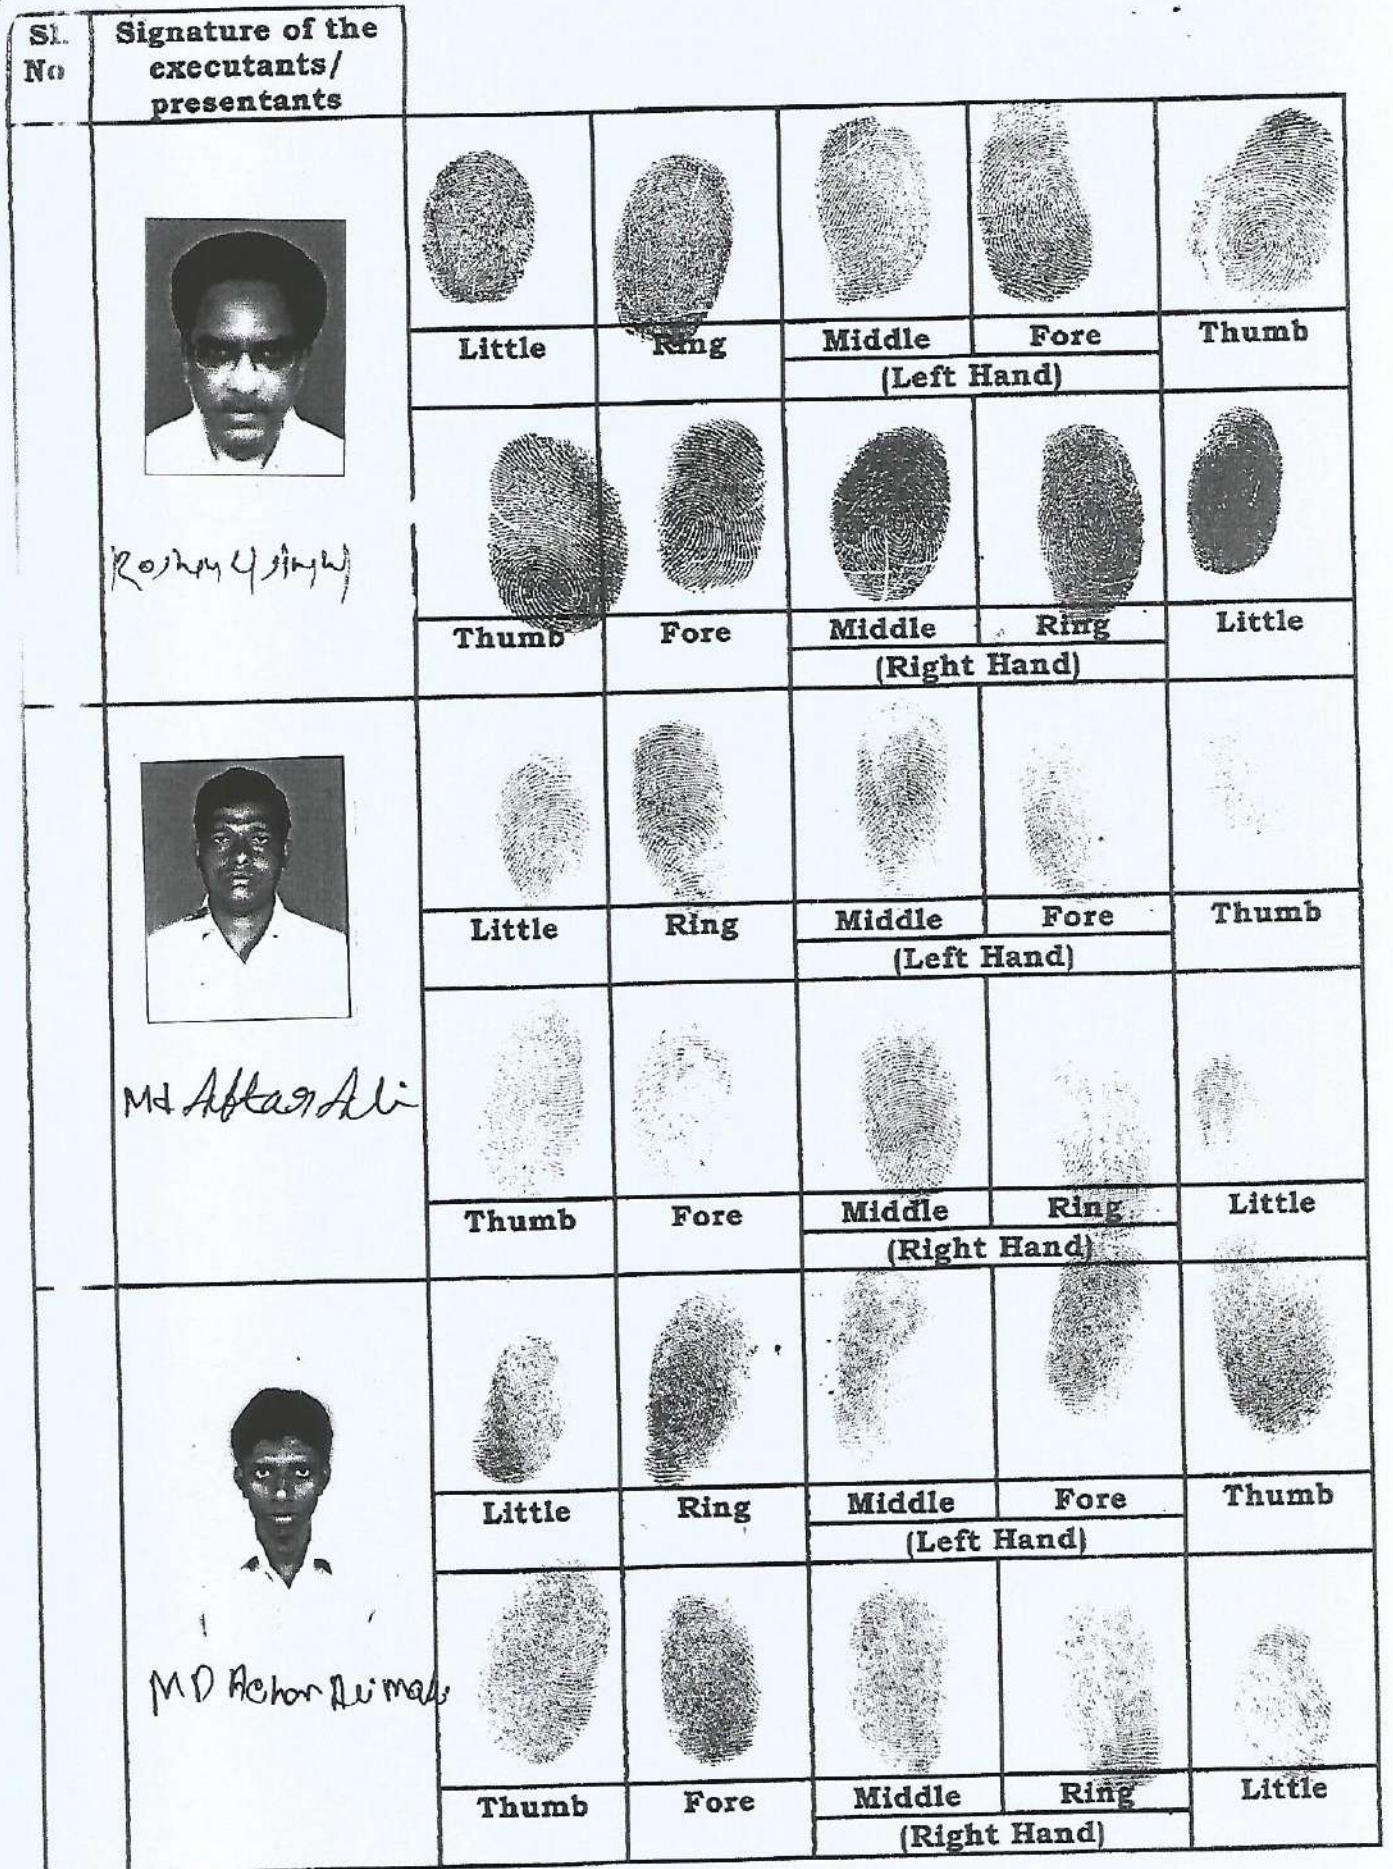 Sl. No
Signature of the executants/ presentants
Little Ring Middle Fore Thumb
(Left Hand)
Thumb Fore Middle Ring Little
(Right Hand)
Little Ring Middle Fore Thumb
(Left Hand)
Md Aftar Ali
Thumb Fore Middle Ring Little
(Right Hand)
Little Ring Middle Fore Thumb
(Left Hand)
MD
Thumb Fore Middle Ring Little
(Right Hand)